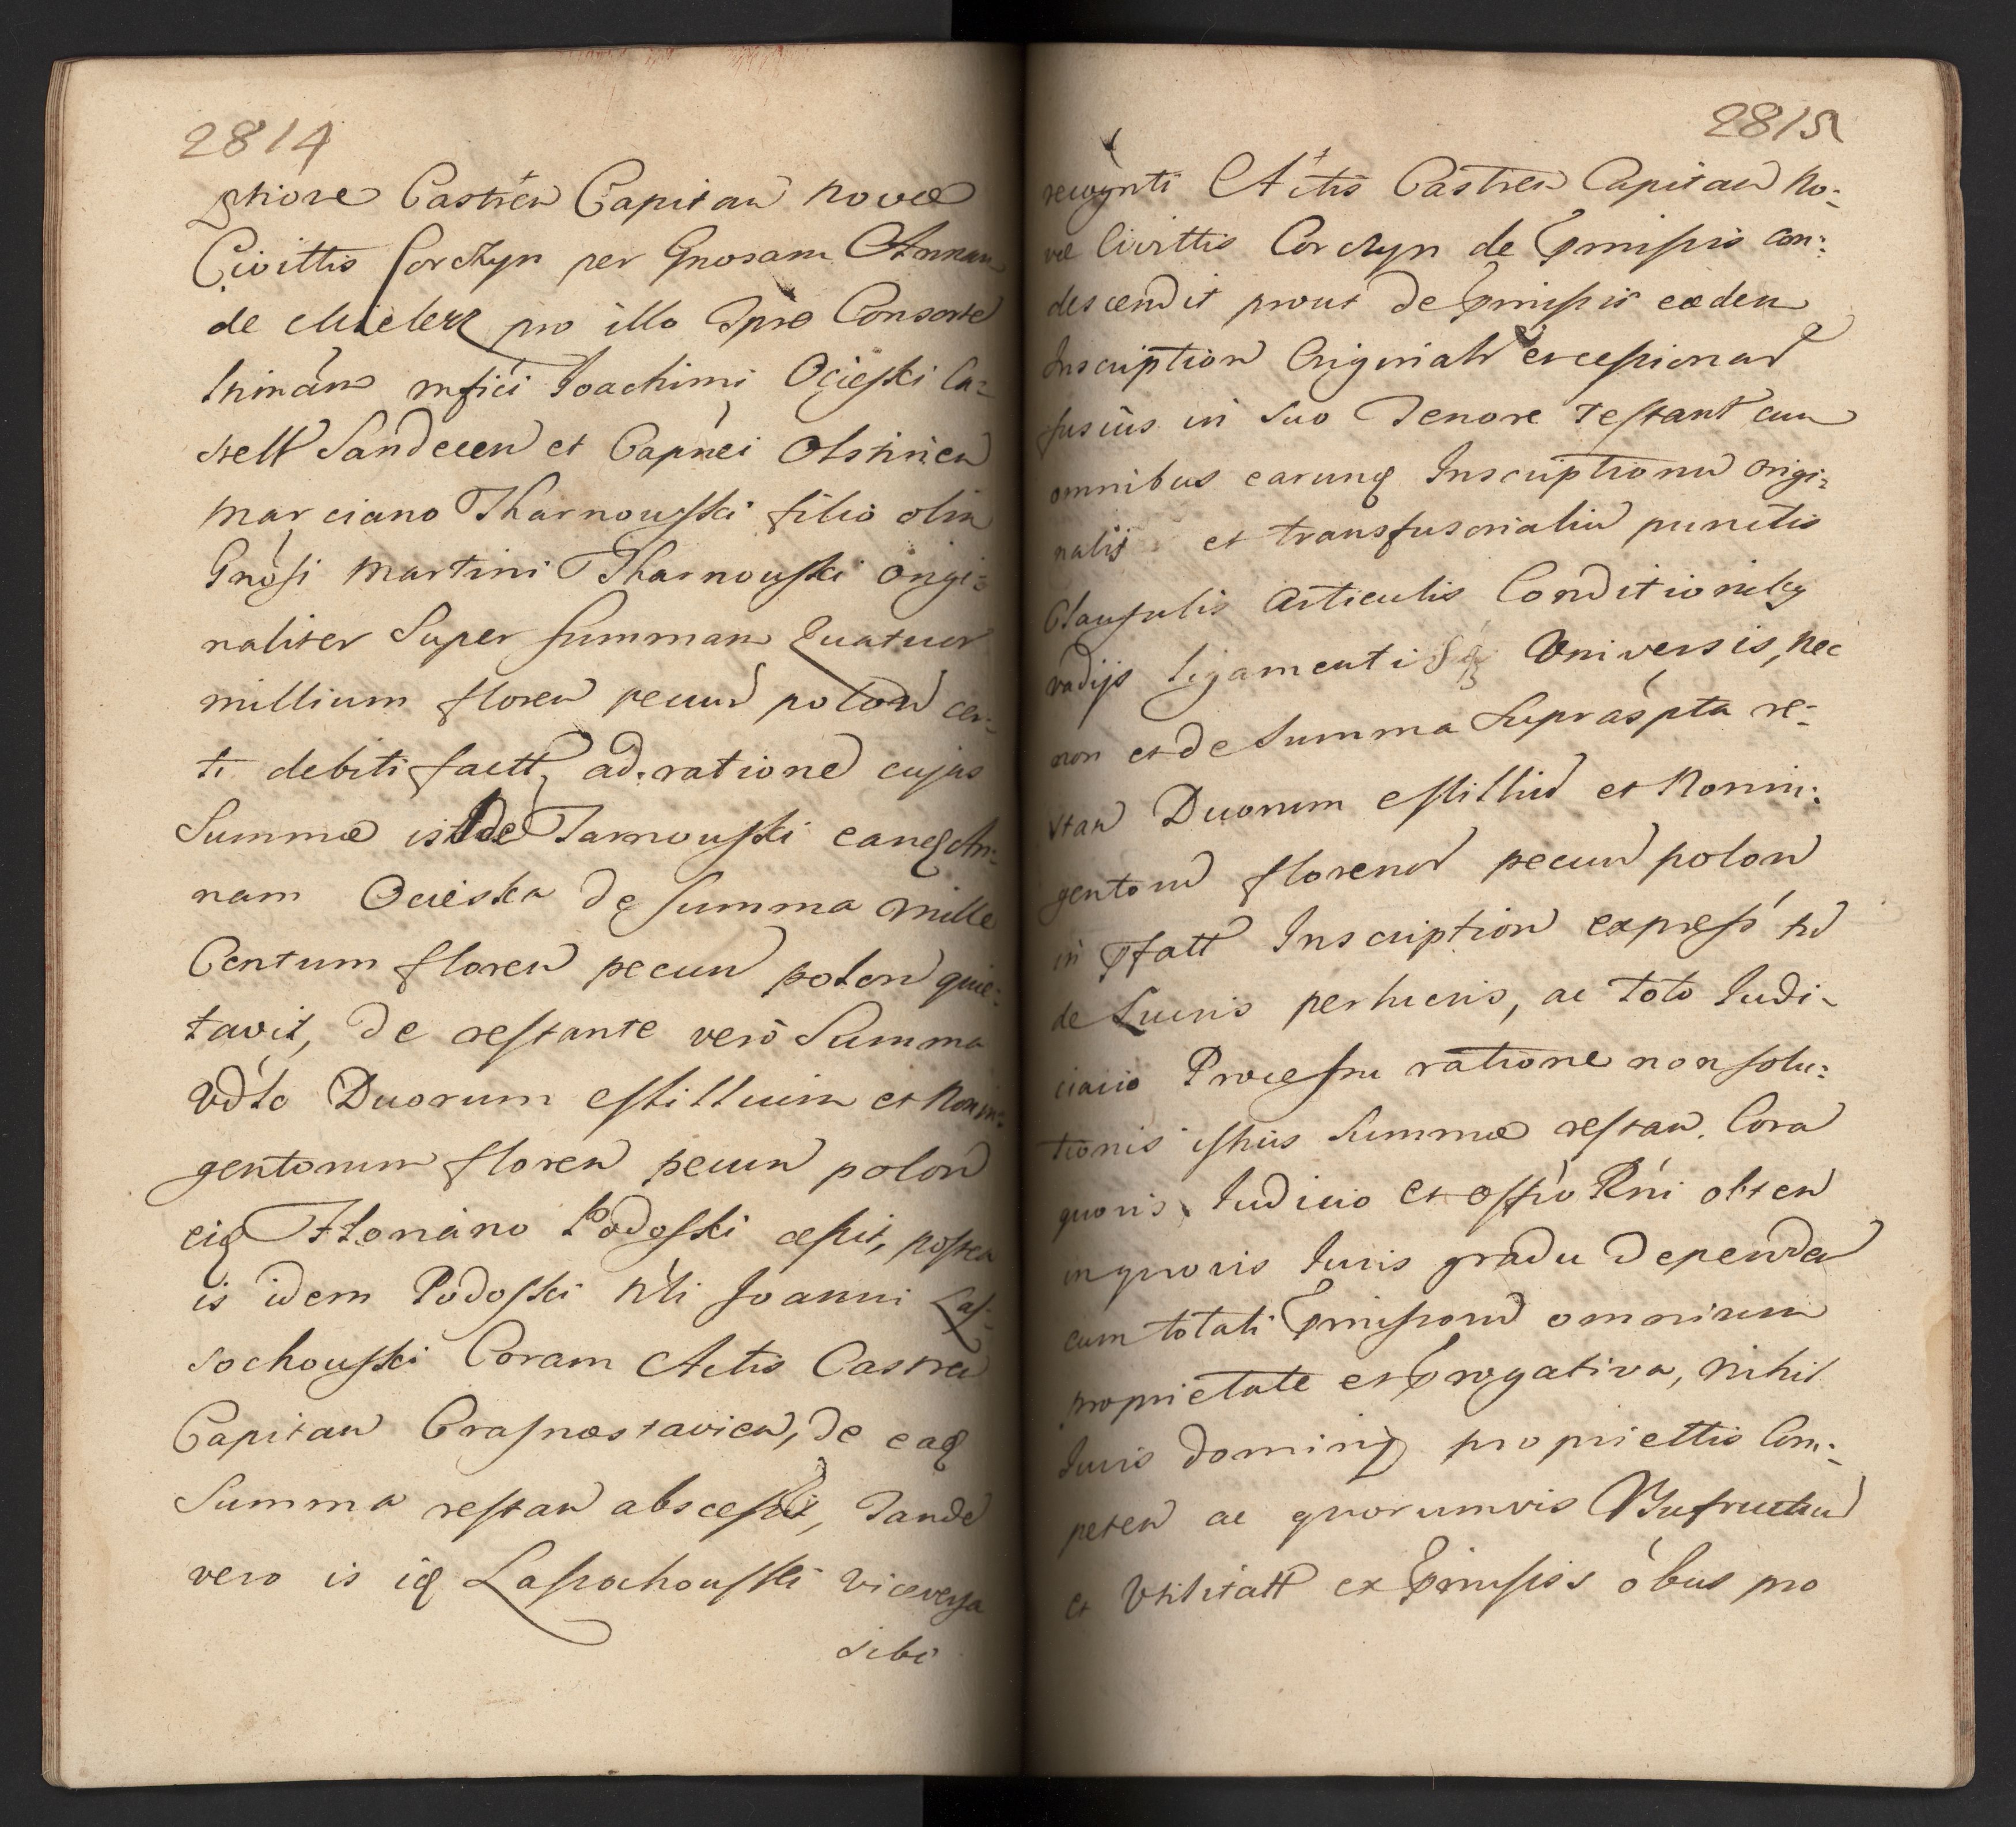 2814
Castren Capitan novæ
Civittis Corczyn per Gnosam Annam
de Mielecz pro illo Consorte
mfici Joachimi Ocieski Ca-
stell Sandecen et Capnei Olstinen
Marciano Tharnouski filio olim
Gnosi Martini Tharnouski origi-
naliter Super summam Quatuor
millium floren pecun polon cer-
ti debiti factt, ad rationē cujus
Summæ Tarnouski eanq An-
namOcieska de summa mille
Centum floren pecun polon quie-
tavit, de restante vero Summa
vdto Duorum Millium et Nonin-
gentorum floren pecun polon
eiq Floriano Podoski cessit, postea
is idem Podoski Nli Joanni Las-
sochouski Coram Actis Castren
Capitan Crasnostavien, de eaq
Summa restan abscessit, Tande
vero is iq Lassochouski viceversa
sibi
2815
recognti Actis Castren Capitan No-
væ Civittis Corczyn de Præmissis con-
descendit prout de Præmissis eædem
Inscription Original et cessional
fusius in suo Tenore testantr cum
omnibus earunq Inscriptionū origi-
nali et transfusorialiū punctis
Clausulis Articulis Conditionibq
vadijs ligamentisq Universis, nec
non et de Summa Suprascpta re-
stan Duorum Milliū et Nonin-
gentorū florenor pecun polon
in Inscription express
de Lucris perlucris, ac toto Judi-
ciario Processu ratione non solu-
tionis istius Summæ restan. Cora
quovis Judicio et offio Rni obten
in quovis Juris gradu dependen
cum totali Præmissorū omnium
proprietate et Prærogativa, nihil
Juris dominij propriettis Com-
peten ac quorumvis Usufructuū
et Utilitatt ex Præmissis obus pro